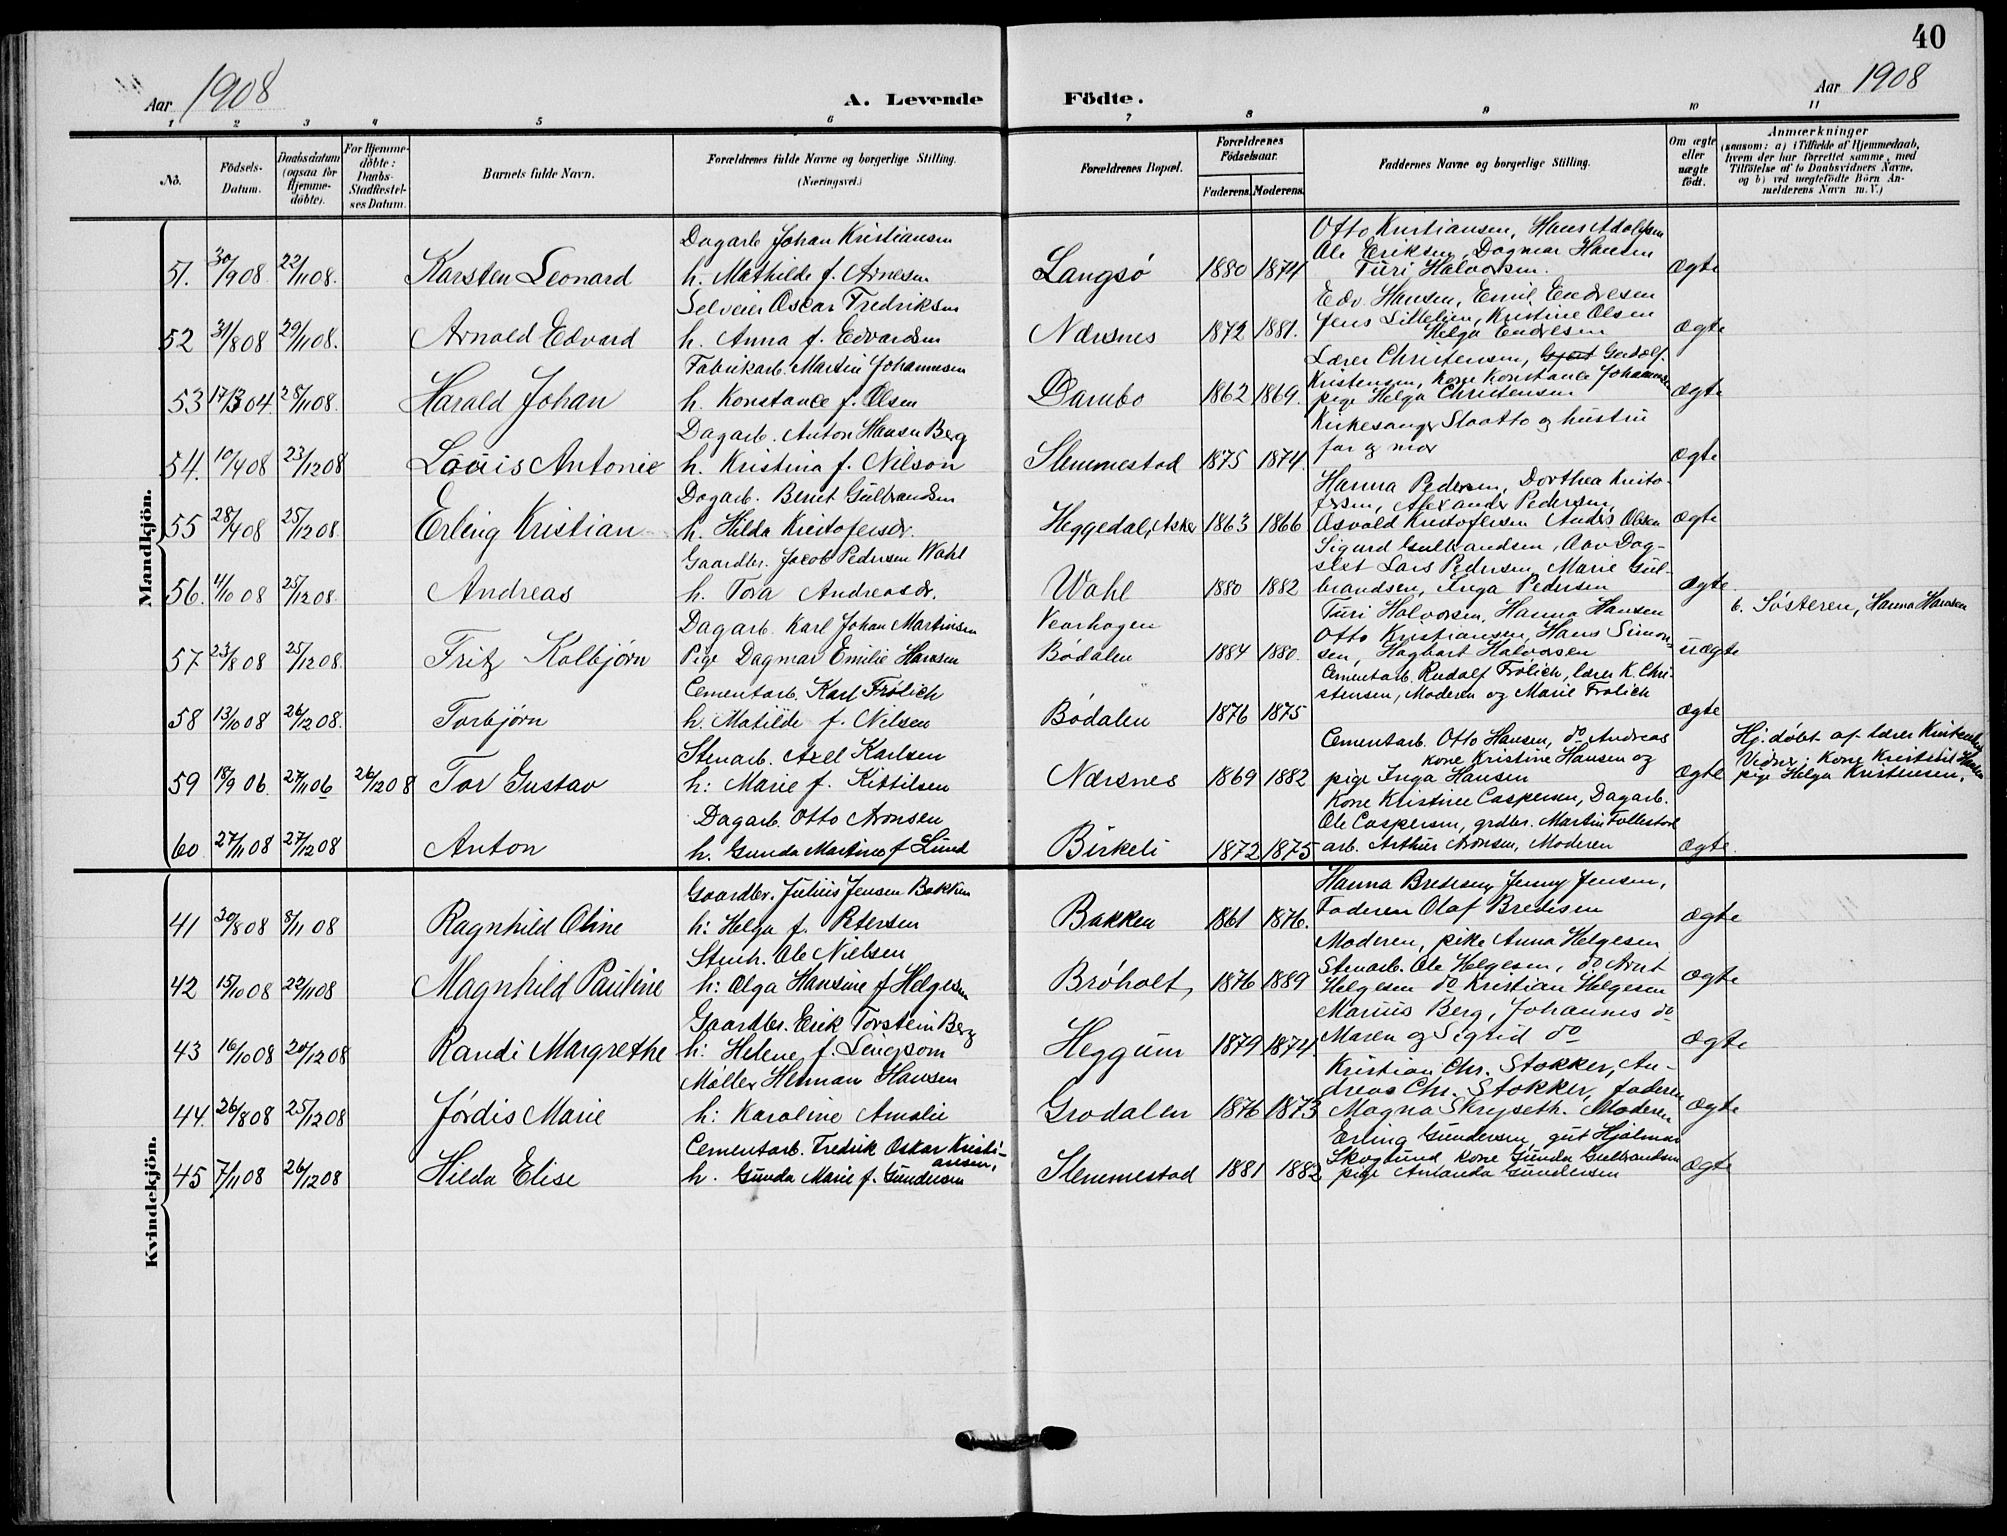 40
Aar 1908
A. Levende
Födte.
Aar 1908
1 2 3 4 5 6 7 8 9 10 11
No.
Födsels-Datum.
Daabsdatum (ogsaa for Hjemme-döbte).
For Hjemme-döbte: Daabs-Stadfæstel-ses Datum.
Barnets fulde Navn.
Forældrenes fulde Navne og borgerlige Stilling. (Næringsvei.)
Forældrenes Bopæl.
Forældrenes Födselsaar.
Faderens. Moderens.
Faddernes Navne og borgerlige Stilling.
Om ægte eller uægte födt.
Anmærkninger
(saasom: a) i Tilfælde af Hjemmedaab, hvem der har forrettet samme, med Tilföielse af to Daabsvidners Navne, og b) ved uægtefödte Börn An-melderens Navn m. V.)
Mandkjön.
Dagarb Johan Kristiansen
Otto Kristiansen, Hans Adolfsen
Ole Eriksen, Dagmar Hansen
51. 30/9 08. 22/11 08. Karsten Leonard h. Mathilde f. Arnesen Langsø 1880 1874 Turi Halvorsen. Ægte
Selveier Oscar Fredriksen
Edv. Hansen, Emil Endresen
Jens Littelien, Kristine Olsen
52 31/8 08 29/11 08. Arnold Edvard h. Anna f. Edvardsen Nærsnes 1872 1881. Helga Endresen Ægte
Fabrikarb. Martin Johannesen
Lærer Christensen, Gudolf
Kristensen, Kone Konstance Johannesen
53 17/3 04 28/11 08. Harald Johan h. Konstance f. Olsen Dambo 1862 1869. pige Helga Christensen Ægte
Dagarb. Anton Hansen Berg
Kirkesanger Slaatto og hustru
54. 10/4 08 23/12 08 Louis Antonie h. Kristina f. Nilson Slemmestad 1875 1874. far og mor Ægte
Dagarb. Bernt Gulbrandsen
Hanna Pedersen, Dorthea Kristo-
fersen, Alexander Pedersen,
55 28/4 08 25/12 08. Erling Kristian h. Hilda Kristofersdr. Heggedal, Asker 1863 1866 Osvald Kristofersen Anders Olsen Ægte
Gaardbr. Jacob Pedersen Wahl
Sigurd Gulbrandsen,
Lars Pedersen, Marie Gul-
56. 11/10 08 25/12 08. Andreas h. Tora Andreasdr. Wahl 1880 1882 brandsen, Inga Pedersen Ægte
Dagarb. Karl Johan Martinsen
Turi Halvorsen, Hanna Hansen
b. Søsteren, Hanna Hansen
Otto Kristiansen, Hans Simon-
57 23/8 08 25/12 08. Fritz Kolbjørn Pige Dagmar Emilie Hansen Bødalen 1884 1880. sen, Hagbart Halvorsen uægte
Cementarb. Karl Frølich
Cementarb. Rudolf Frølich, lærer K. Chri-
stensen, Moderen og Marie Frølich
58 13/10 08 26/12 08. Torbjørn h. Matilde f. Nilsen Bødalen 1876 1875 Ægte
Stenarb. Axel Karlsen
Cementarb. Otto Hansen, do Andreas
kone Kristine Hansen og
59 18/9 06. 27/11 06 26/12 08 Tor Gustav h: Marie f. Kittilsen Nærsnes 1869 1882 pige Inga Hansen Ægte
Hj. døbt af lærer Kristensen
Vidner: Kone Hansen
pige Helga Kristensen.
Dagarb. Otto Aronsen
Kone Kristine Caspersen, Dagarb.
Ole Caspersen, grdbr. Martin Follestad
60 27/11 08 27/12 08 Anton h. Gunda Martine f Lund Birkeli 1872 1875 arb. Arthur Aronsen, Moderen Ægte.
Kvindekjön.
Gaardbr. Julius Jensen Bakken
Hanna Bredesen, Jenny Jensen,
41 30/8 08 8/11 08 Ragnhild Oline h: Helga f. Petersen Bakken 1861 1876. Faderen Olaf Bredesen Ægte
Stenh. Ole Nielsen
Moderen, pike Anna Helgesen
Stenarb. Ole Helgesen, do Arnt
42 15/10 08 22/11 08 Magnhild Pauline h: Olga Hansine f Helgesen Brøholt, 1876 1889 Helgesen do Kristian Helgesen Ægte
Gaardbr. Erik Torstein Berg
Marius Berg, Johannes do
43 16/10 08 20/12 08 Randi Margrethe h: Helene f. Lingsom Heggum 1879 1874. Maren og Sigrid do Ægte
Møller Herman Hansen
Kristian Chr. Stokker, An-
dreas Chr. Stokker, faderen
44. 26/8 08 25/12 08 Jørdis Marie h: Karoline Amalie Grodalen 1876 1873 Magna Skryseth. Moderen Ægte
Cementarb. Fredrik Oskar Kristi-
ansen,
Erling Gundersen, gut Hjalmar
Skoglund kone Gunda Gulbrandsen
45 7/11 08 26/12 08 Hilda Elise h. Gunda Marie f. Gundersen Slemmestad 1881 1882 pige Amanda Gundersen Ægte